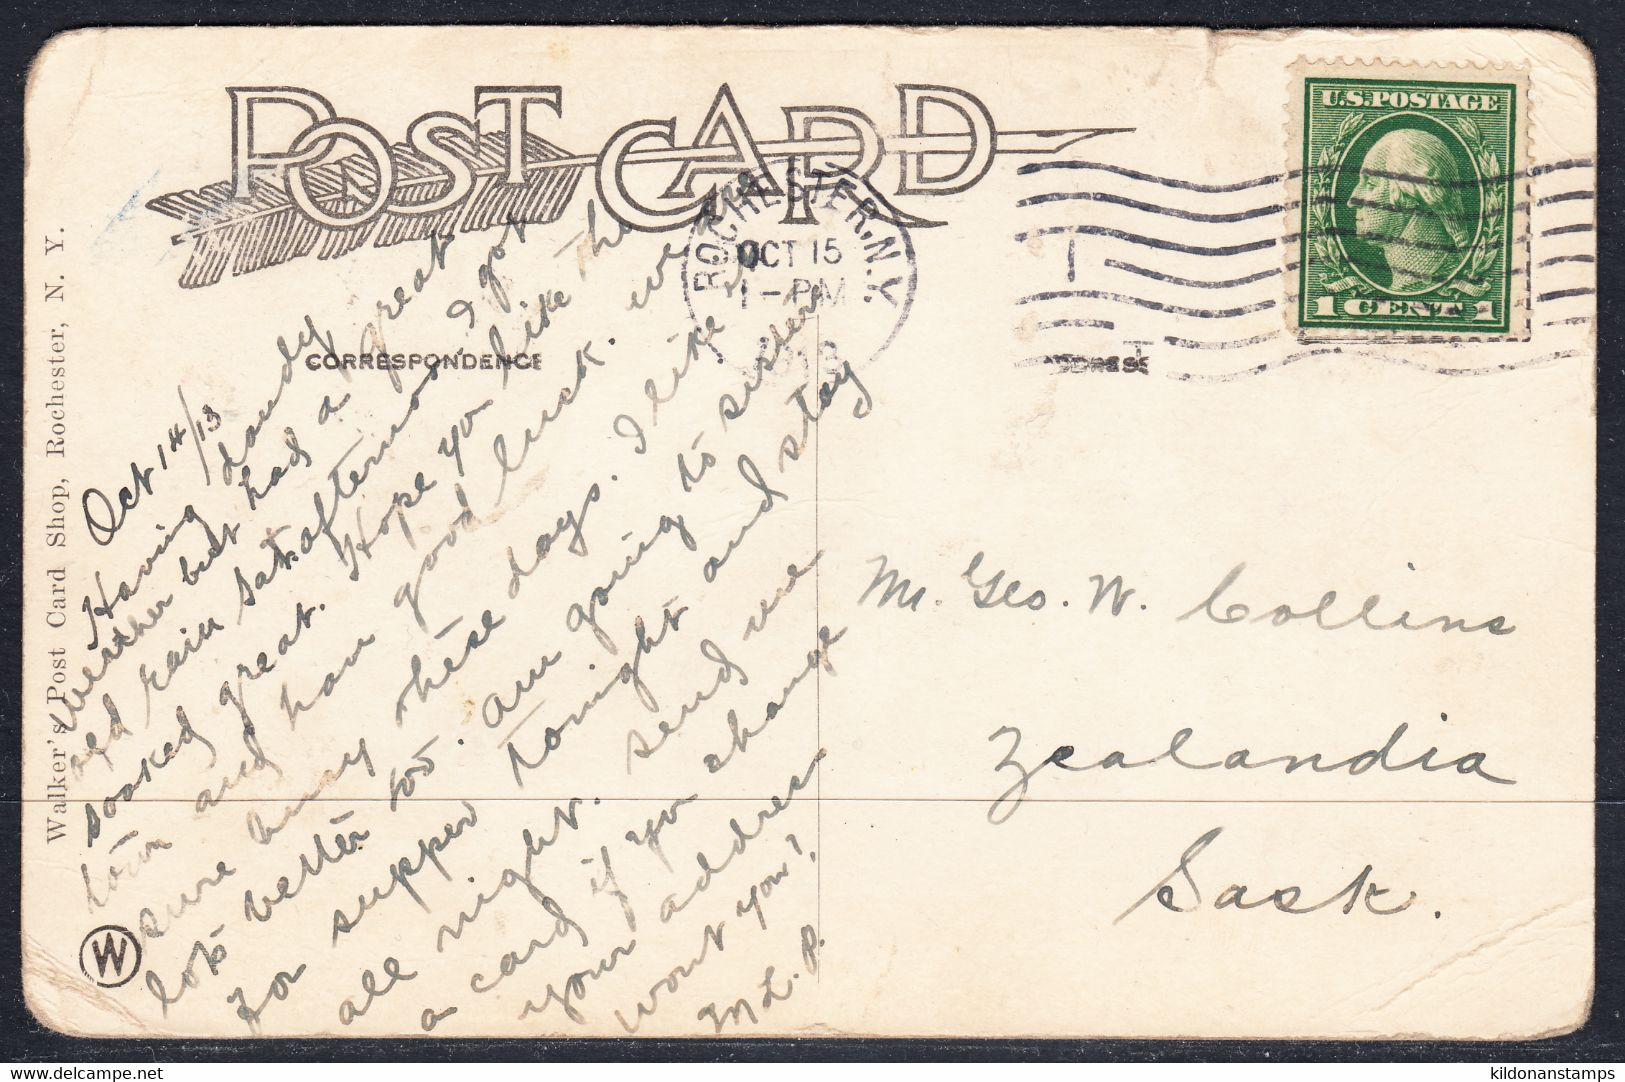 POST CARD
CORRESPONDENCE
ADDRESS
ROCHESTER, N.Y.
OCT 15
1 - PM
1913
U.S. POSTAGE
1 CENT 1
Walker's Post Card Shop, Rochester, N. Y.
W
Oct 14/13
Having dandy
weather but had a great
old rain Sat. afternoon I got
soaked great. Hope yo like the
town and have good luck. we are
sure busy these days. I like it
lots better too. Am going to sisters
for supper tonight and stay
all night. send me
a card if yo change
your address
wont you?
M. L. P.
Mr. Geo. W. Collins
Zealandia
Sask.
kildonanstamps
delcampe.net